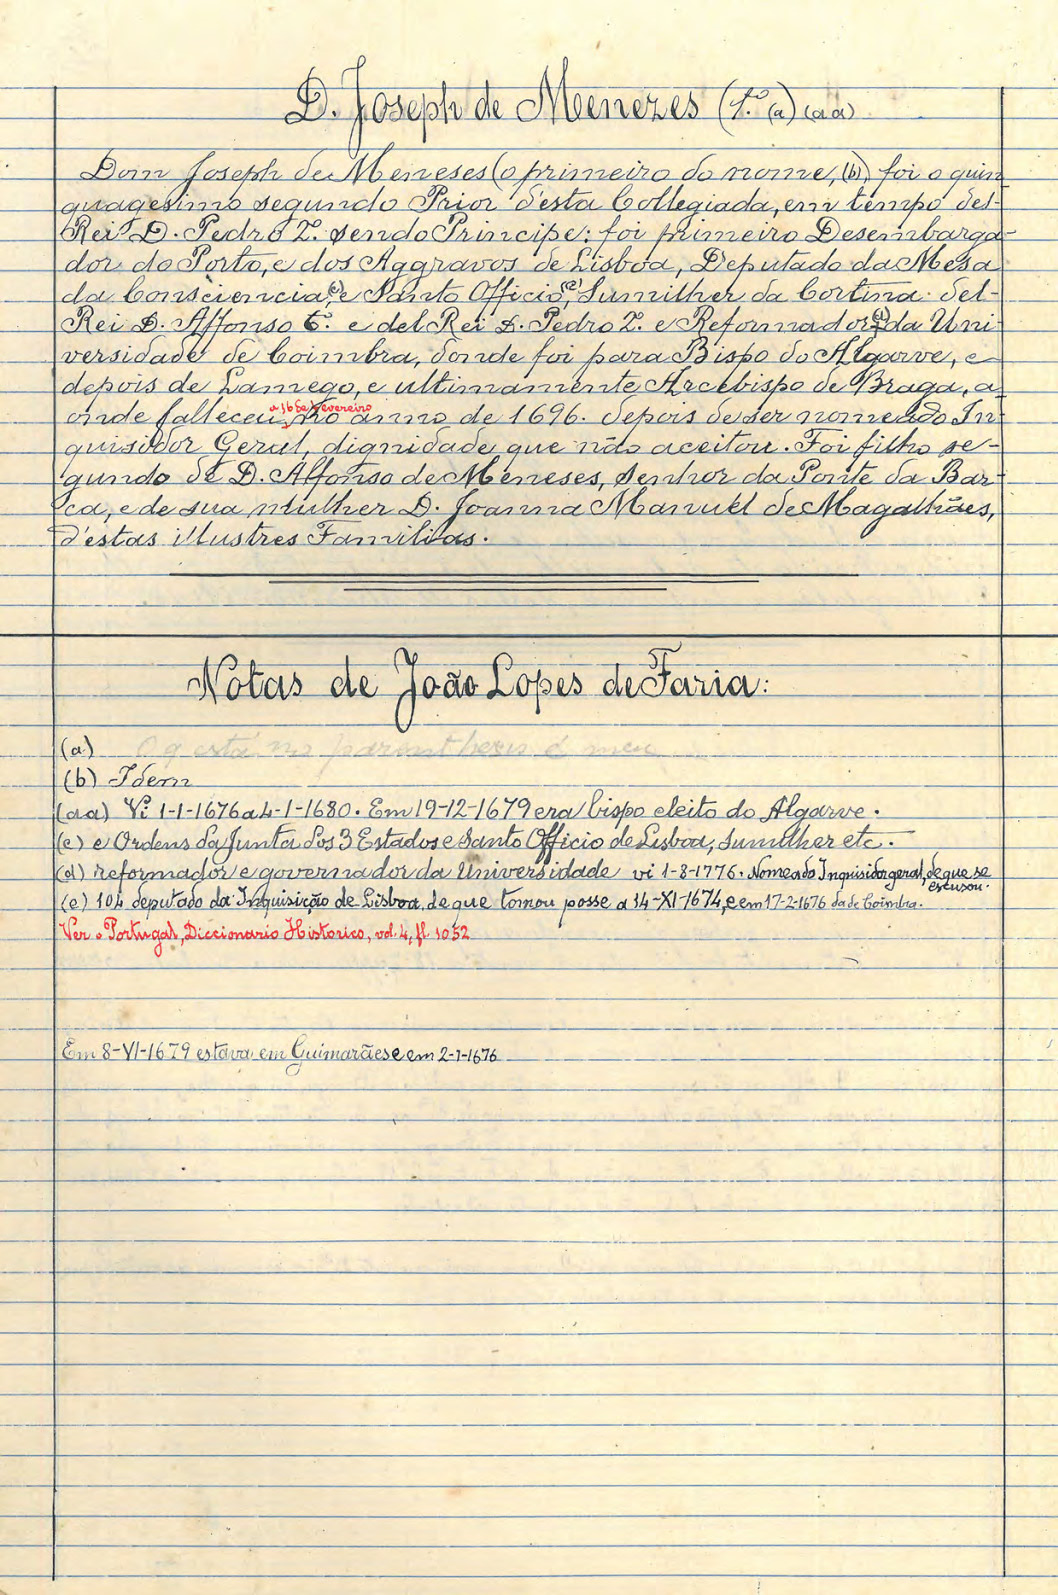 D. Joseph de Menezes (1.º (a) (aa)
Dom Joseph de Meneses (o primeiro do nome, (b) foi o quin
quagesimo segundo Prior d'esta Collegiada, em tempo del-
Rei D. Pedro 2.º sendo Principe: foi primeiro Desembarga-
dor do Porto, e dos Aggravos de Lisboa, Deputado da Mesa
da Consciencia, (c) e Santo Officio, (e) Sumilher da Cortina del-
Rei D. Affonso 6.º e del Rei D. Pedro 2. e Reformador (d) da Uni
versidade de Coimbra, donde foi para Bispo do Algarve, e
depois de Lamego, e ultimamente Arcebispo de Braga, a
onde falleceu a 16 de Fevereiro no anno de 1696. depois de ser nomeado In
quisidor Geral, dignidade que não aceitou. Foi filho se-
gundo de D. Affonso de Meneses, Senhor da Ponte da Bar-
ca, e de sua mulher D. Joanna Manuel de Magalhães,
d'estas illustres Familias.
Notas de João Lopes de Faria:
(a) O q está no parentheris é meu
(b) Idem
(aa) Vi 1-1-1676 a 4-1-1680. Em 19-12-1679 era bispo eleito do Algarve.
(c) e Ordens da Junta dos 3 Estados e Santo Officio de Lisboa, Sumilher etc.
(d) reformador e governador da Universidade vi 1-8-1776. Nomeado Inquisidor geral, de que se
escusou.
(e) 104 deputado da Inquisição de Lisboa, de que tomou posse a 14-XI-1674, e em 17-2-1676 da de Coimbra.
Ver o Portugal, Diccionario Historico, vol. 4, fl. 1052
Em 8-VI-1679 estava em Guimarães e em 2-1-1676